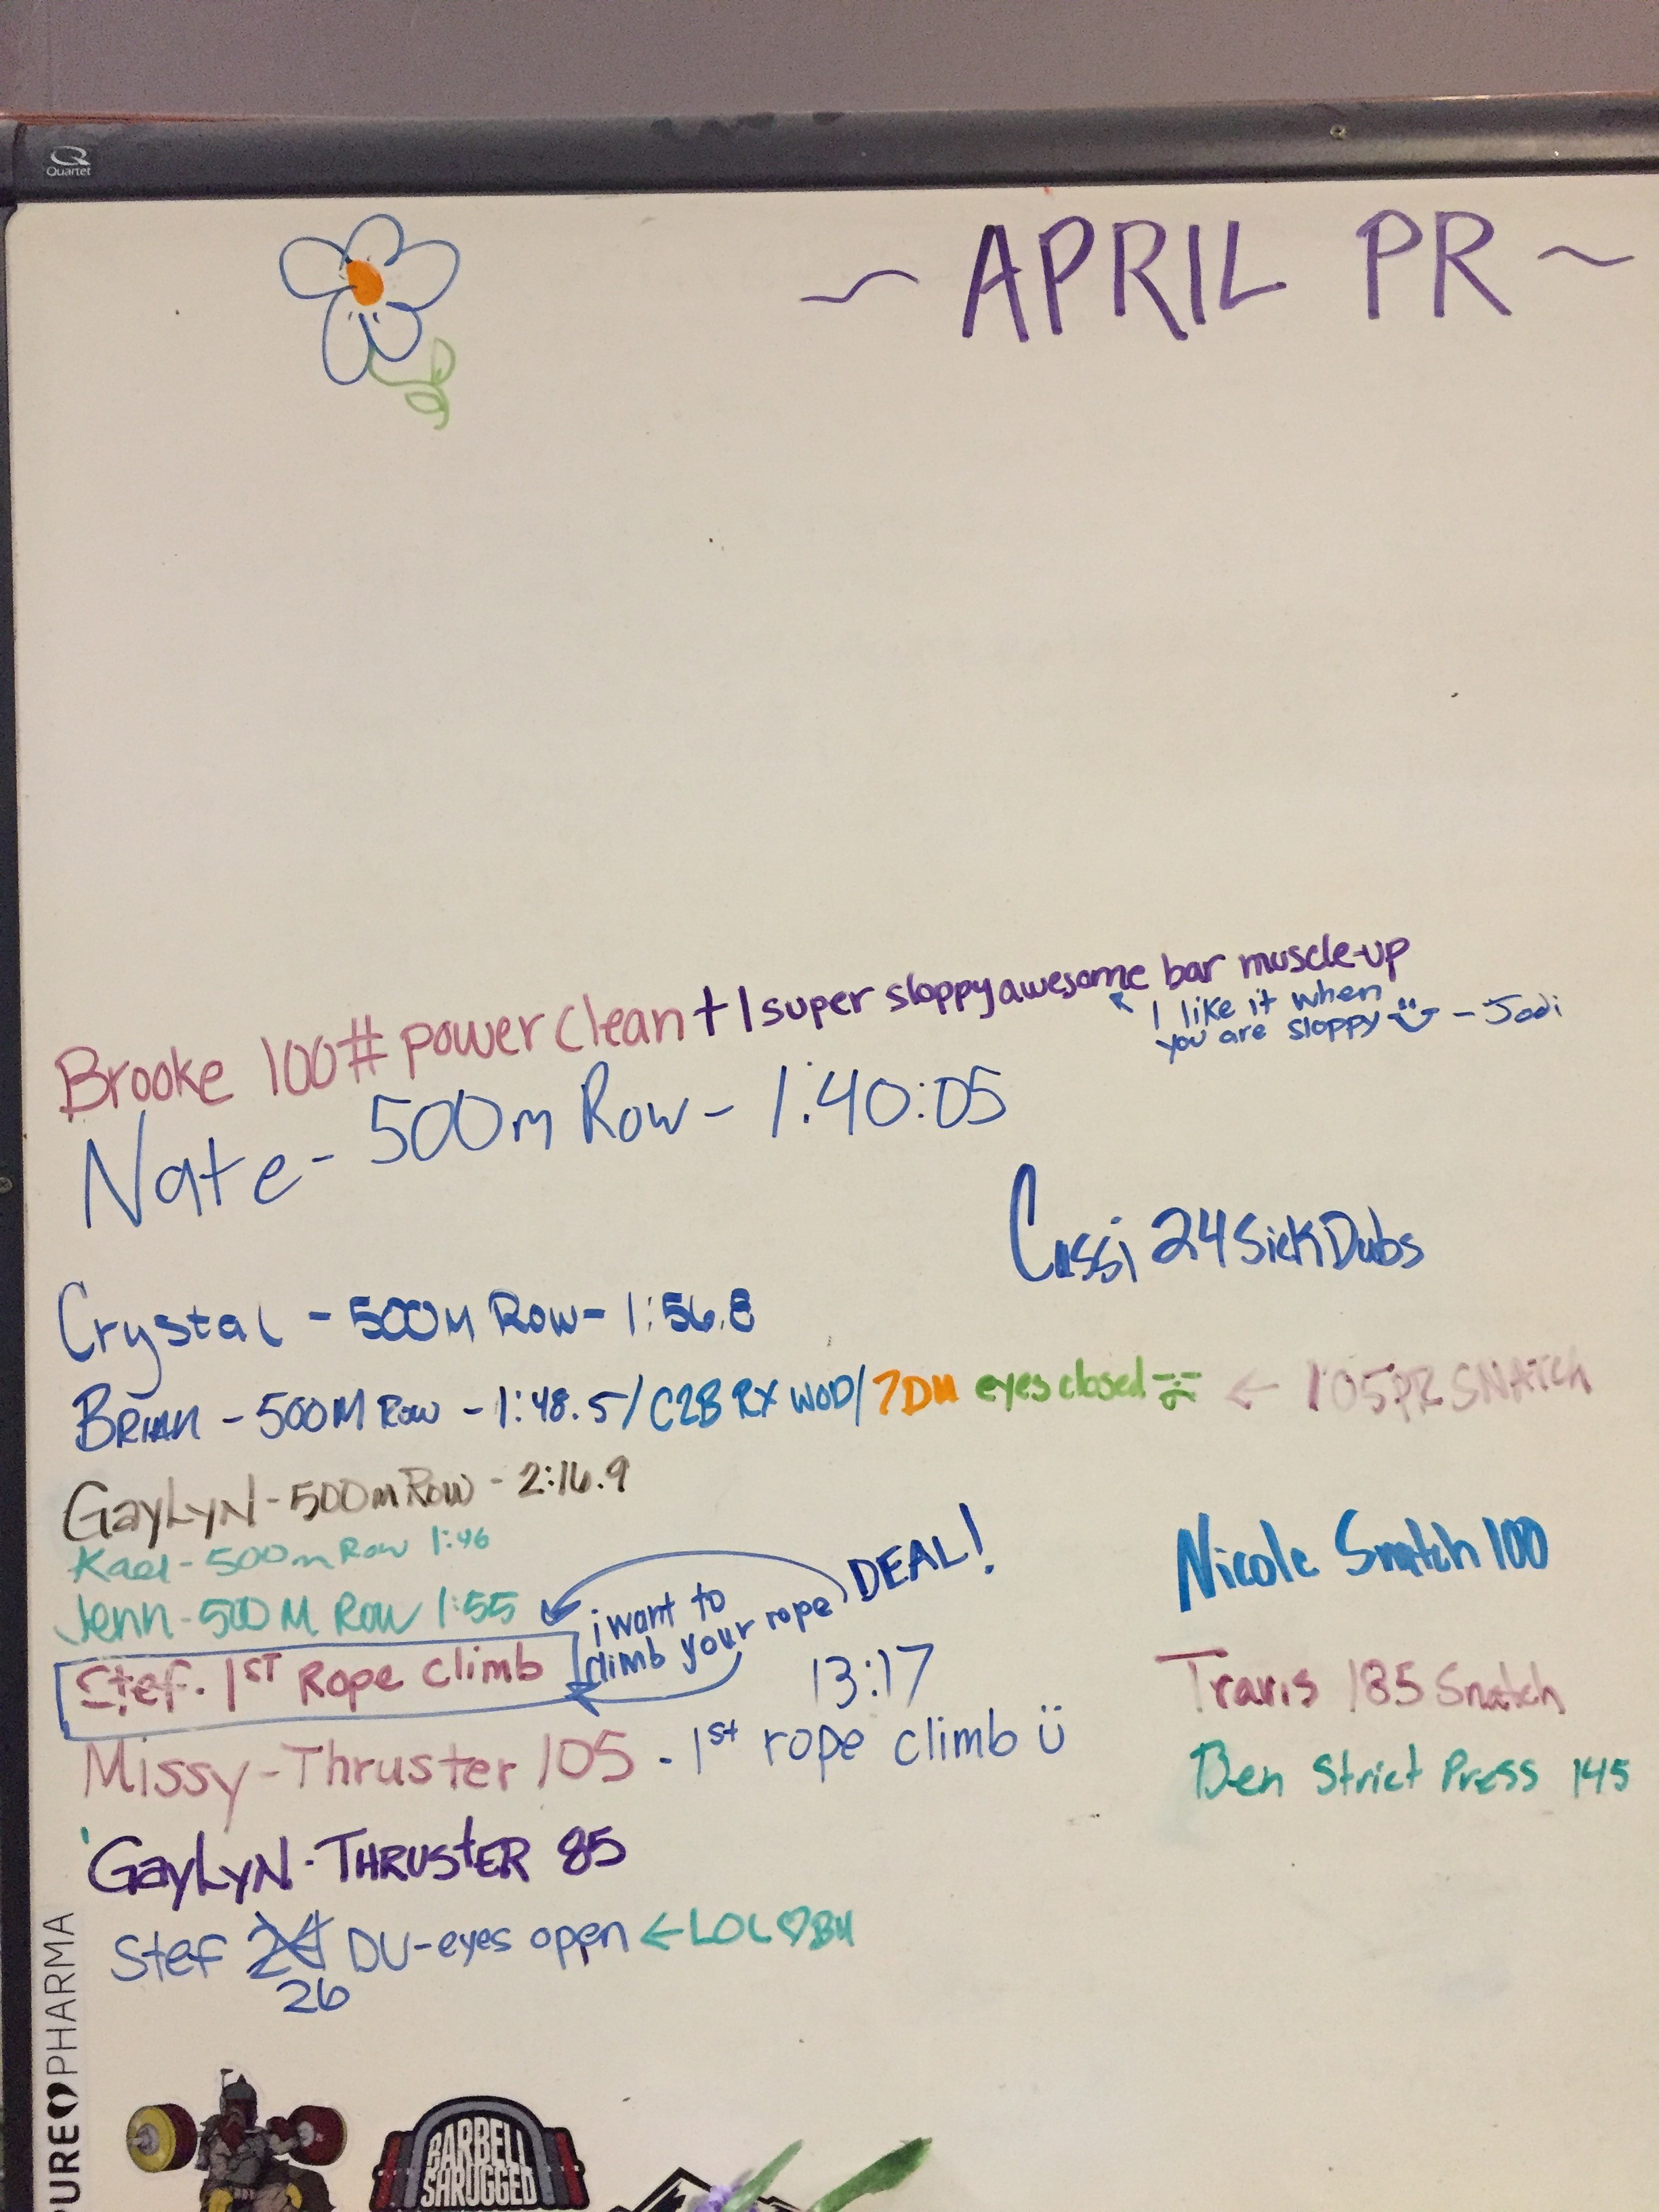 Quartet
~ APRIL PR ~
Brooke 100# power clean + 1 super sloppy awesome bar muscle-up
I like it when
you are sloppy - Jodi
Nate - 500m Row - 1:40:05
Cassi 24 Sick Dubs
Crystal - 500M Row - 1:56.8
BRIAN - 500M Row - 1:48.5 / C2B RX WOD / 7DU eyes closed ← 105 PR SNATCH
GayLyN - 500m Row - 2:16.9
Kael - 500m Row 1:46
Jenn - 500 M Row 1:55
i want to
climb your rope
DEAL!
Nicole Snatch 100
Stef. 1ST Rope Climb
13:17
Travis 185 Snatch
Missy - Thruster 105 - 1st rope climb ü
Ben Strict Press 145
GayLyN - THRUSTER 85
Stef 24 DU - eyes open ← LOL ♡ BU
26
PURE PHARMA
BARBELL
SHRUGGED